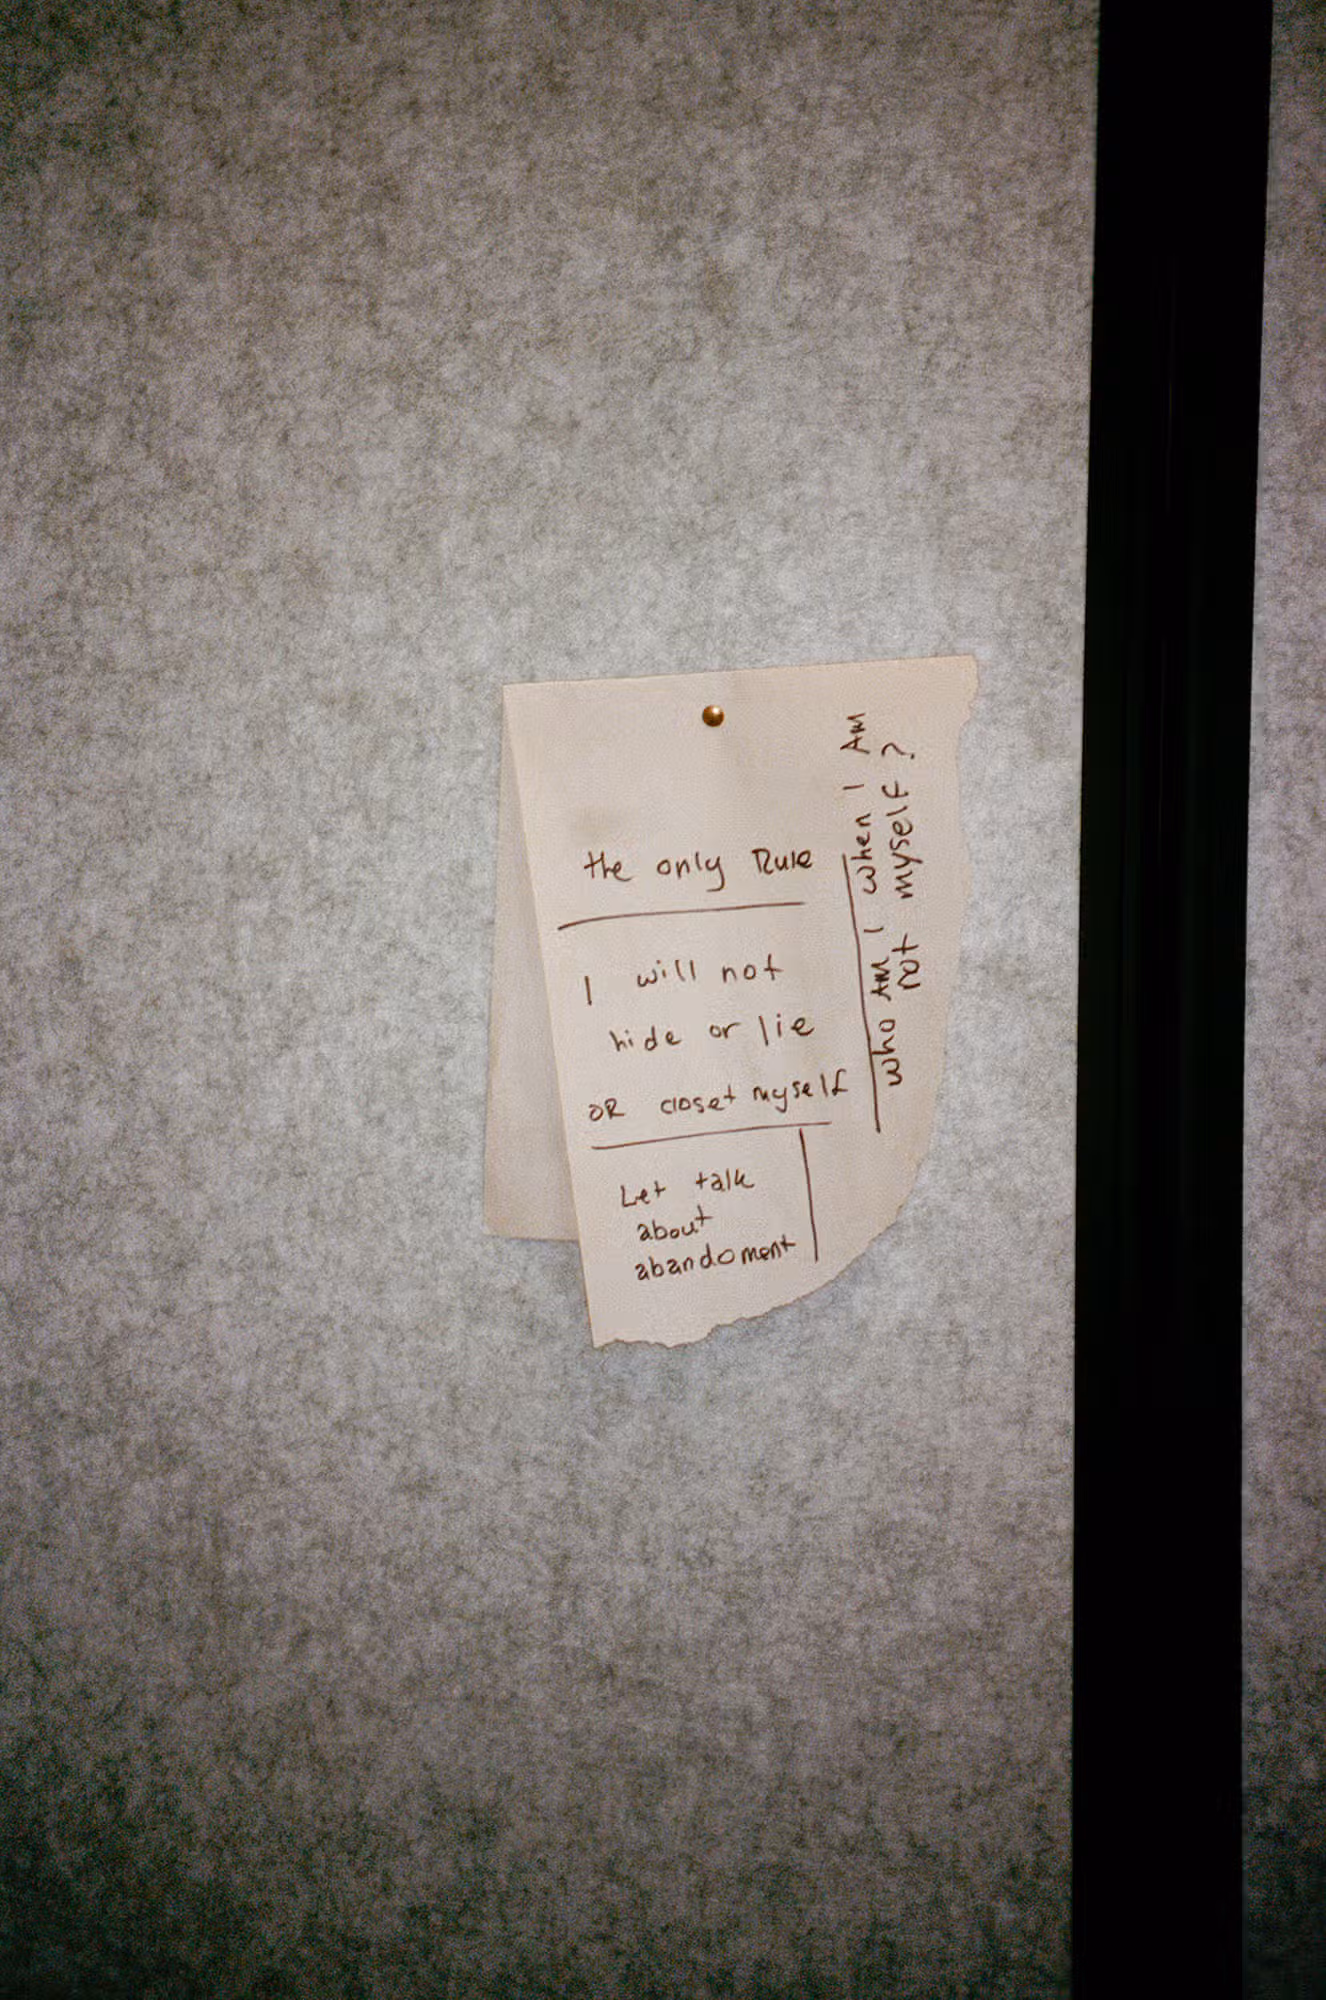 the only Rule
I will not
hide or lie
OR closet myself
Let talk
about
abandoment
who AM I when I AM
not myself?